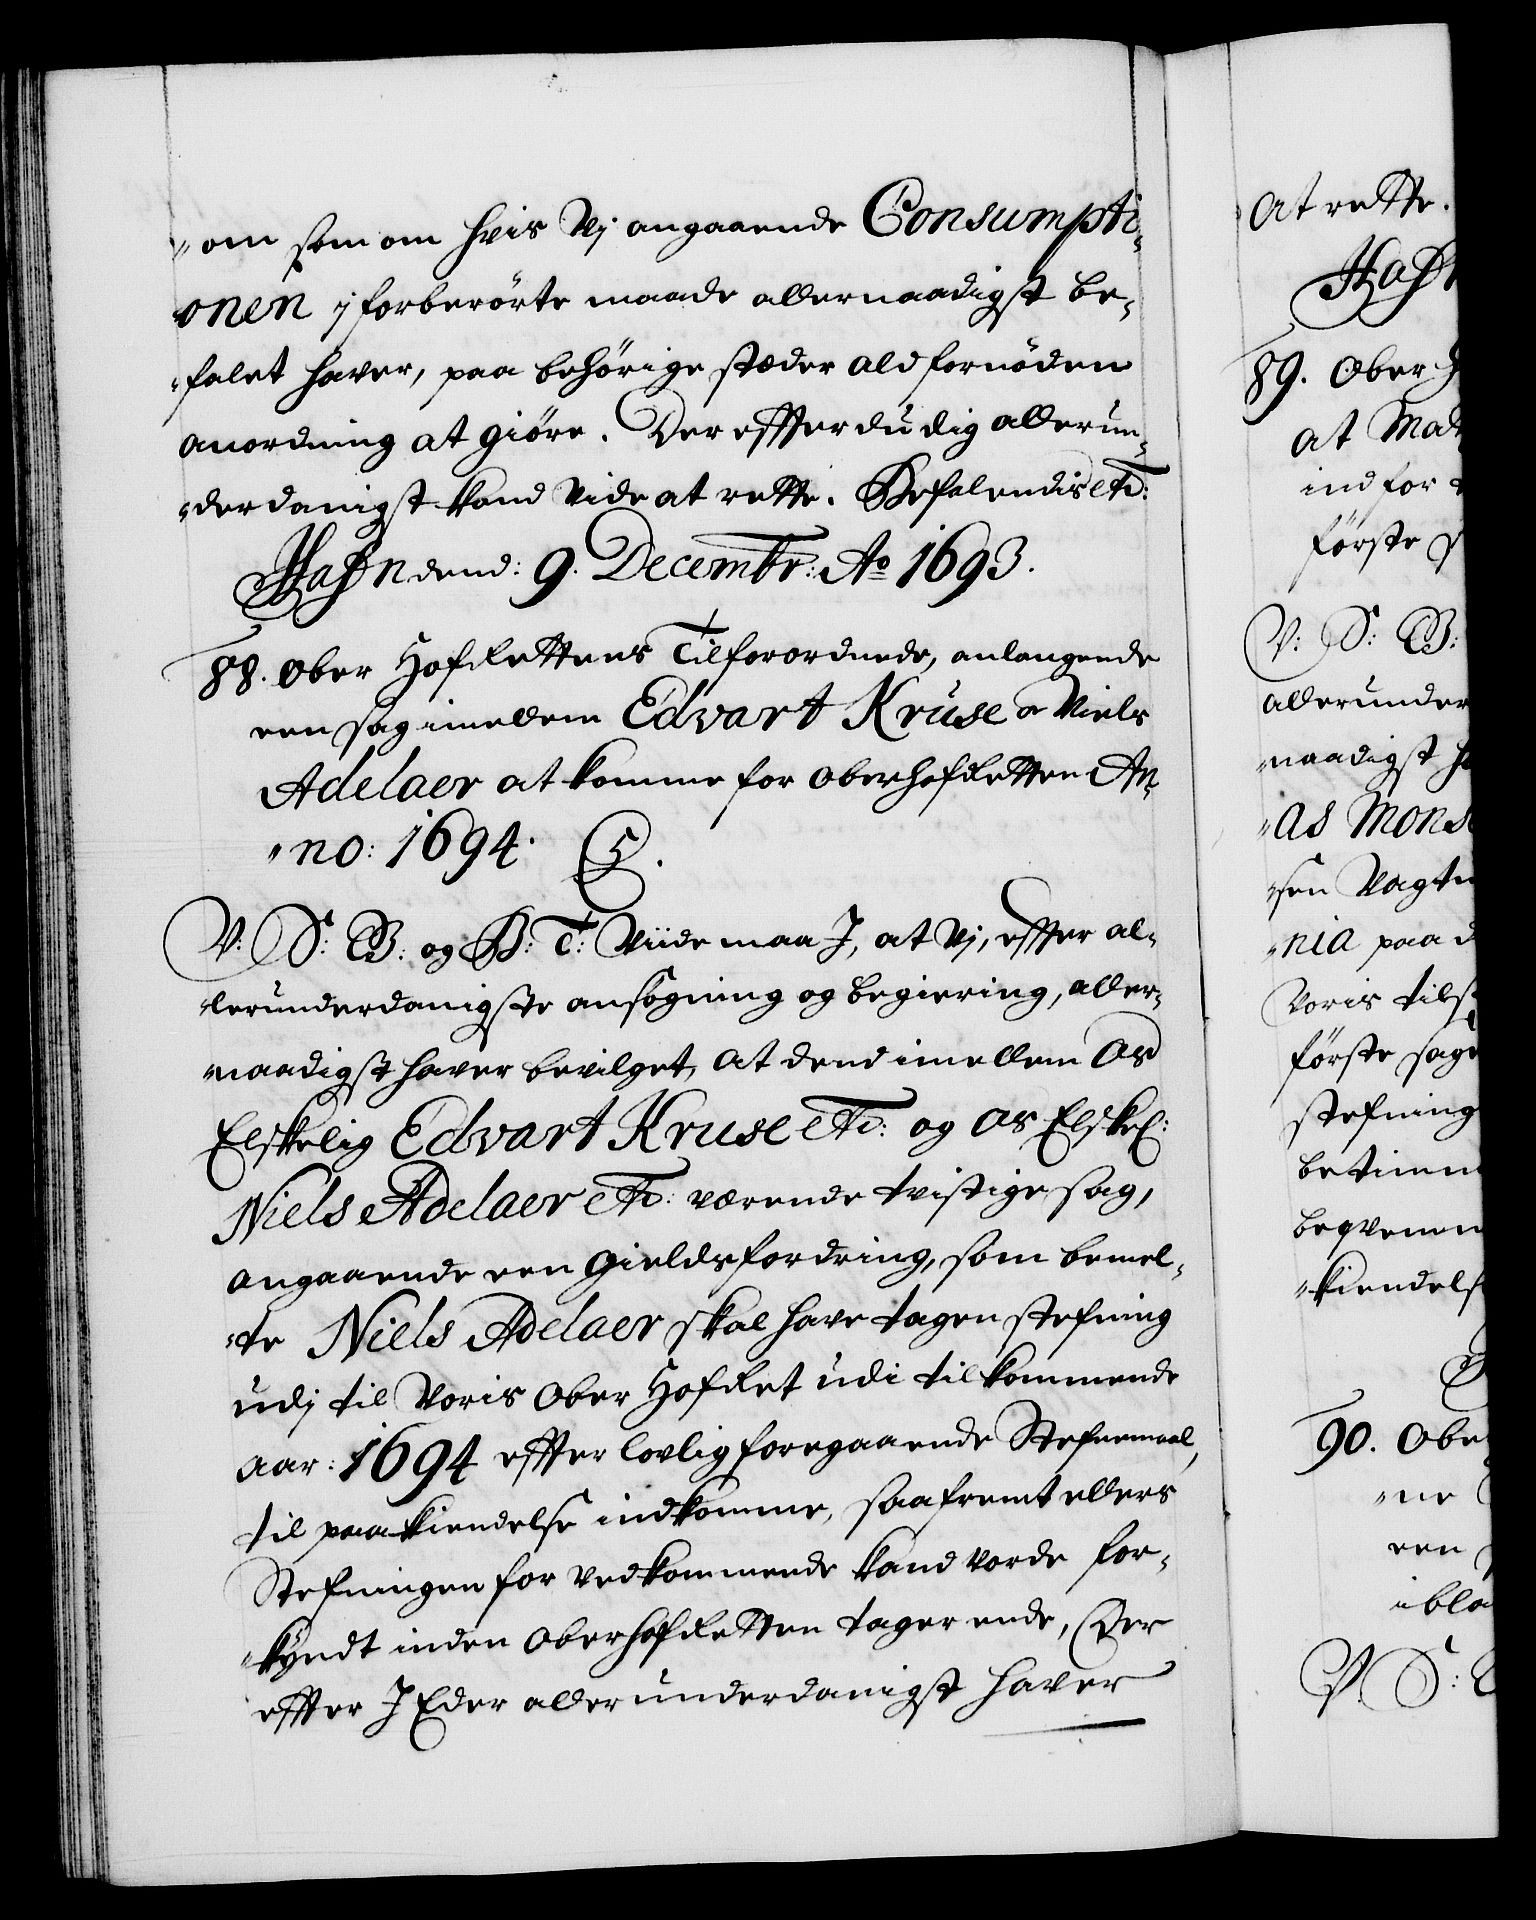 "om som om hvis Vj angaaende Consumpti-
onen j forberörte maade allernaadigst be-
"falet hafver, paa behörige stæder ald fornöden
anordning at giöre. Der effter du dig allerun-
"derdanigst kand vide at rette. Befalendis etc:
Hafn dend: 9. Decembr: Ao 1693.
88. Ober Hofrettens Tilforordnede, anlangende
een sag imellem Edvart Kruse or Niels
Adelaer at komme for Oberhofretten An-
"no: 1694. C5.
V: S: G: og B: T: Viide maa J, at Vj, effter al-
lerunderdanigste ansögning og begiering, aller-
naadigst hafver bevilget, at dend imellem Os
Elskelig Edvart Kruse etc: og Os Elskel:
Niels Adelaer etc: værende tvistige sag,
angaaende een Gieldsfordring, som bemel-
"te Niels Adelaer skal have tagen stefning
udj til Voris Ober Hofret udi tilkommende
aar: 1694 effter lovlig foregaaende Stefnemaal,
til paakiendelse indkomme, saafremt ellers
Stefningen for vedkommende kand vorde for-
"kyndt inden Oberhofretten tager ende, Der
effter J Eder allerunderdanigst hafver
at rette.
Hafn
89. Ober H
at Mad
ind for
förste s
V: S: G:
allerunder
naadigst ha
"as Mons
"sen Vagtm
"nia paa d
Voris tilf
förste sag
stefning
betimm
beqvemm
"kiendels
90. Obe
"ne
een
ibla
V: S: